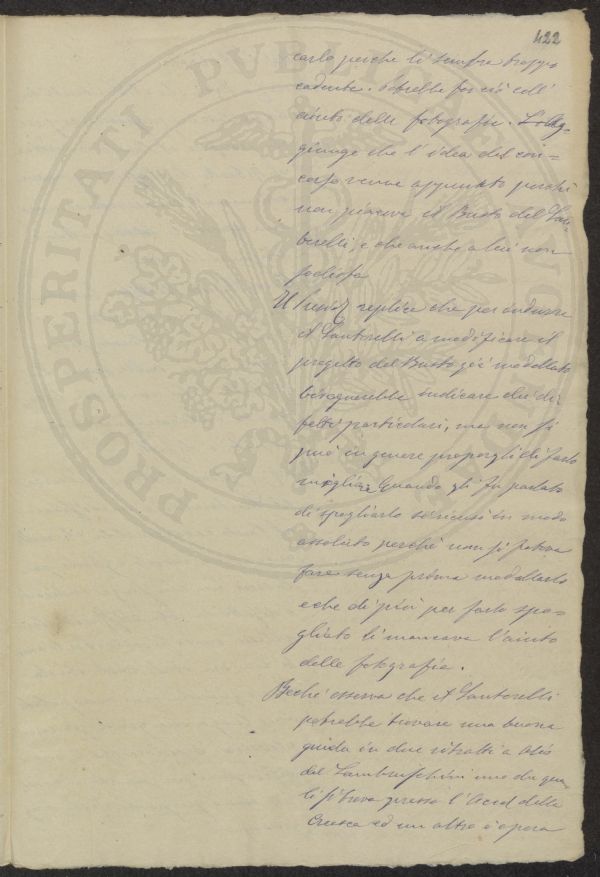 422
carlo perché li sempre troppo
cadente. Potrebbe far ciò coll'
aiuto delle fotografie. Sog-
giunge che l'idea del con-
corso venne appunto perché
non piaceva il Busto del San-
terelli, e che anche a lui non
sodisfa
Il Presid replica che per indurre
il Santarelli a modificare il
progetto del Busto già modellato
bisognerebbe indicare dei di-
fetti particolari, ma non si
può in genere proporgli di farlo
migliore. Quando gli fu parlato
di spogliarlo si ricusò in modo
assoluto perché non si poteva
fare senza prima modellarlo
e che di più per farlo spo-
gliato li mancava l'aiuto
delle fotografie.
Bechi osserva che il Santarelli
potrebbe trovare una buona
guida in due ritratti a olio
del Lambruschini uno dei qua-
li si trova presso l'Accad della
Crusca ed un altro è opera
PROSPERITATI PVBLICAE